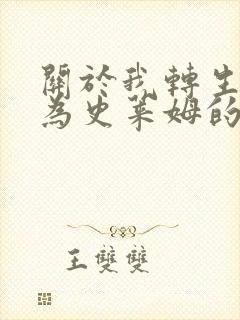 關於我轉生
為史萊姆的
王雙雙